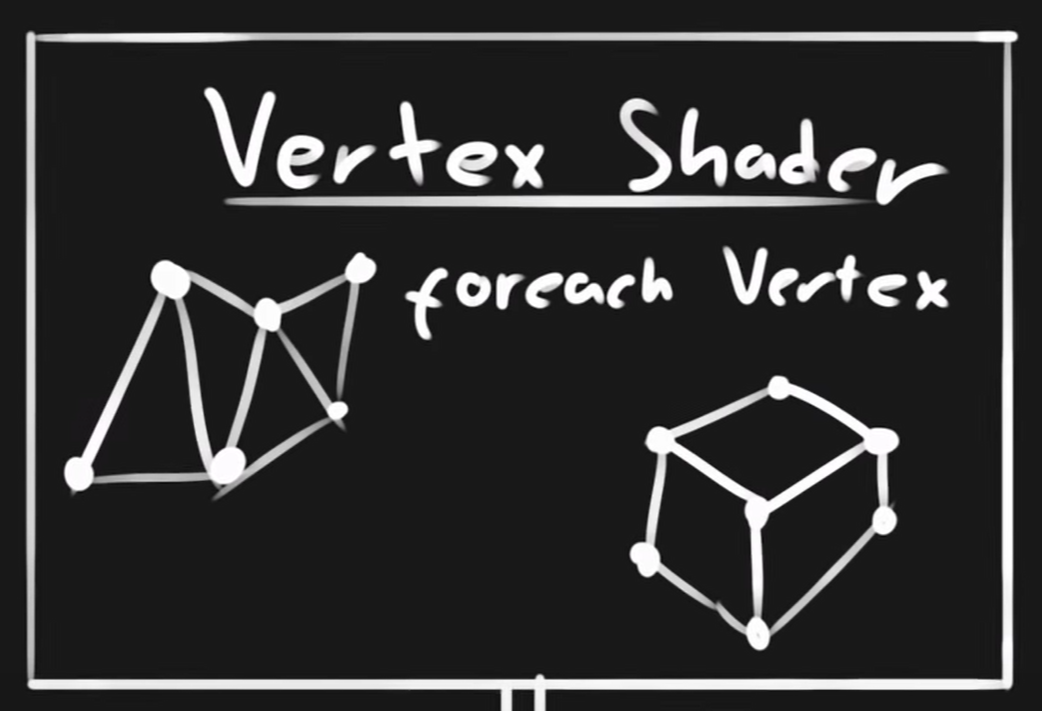 Vertex Shader
foreach Vertex